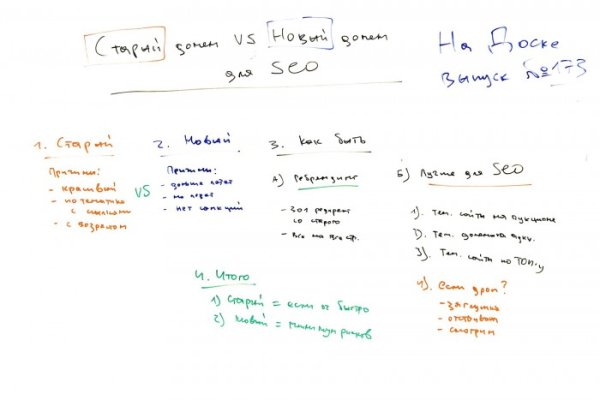 Старый домен VS Новый домен
для SEO
На Доске
выпуск №173
1. Старый
Причины:
- красивый
- по тематике
с ссылками
- с возрастом
VS
2. Новый
Причины:
- дольше
- нет санкций
3. Как быть
А) Ребрендинг
- 301 редирект
со старого
- Все на все стр.
Б) Лучше для SEO
1). Тем. сайты на аукционе
2). Тем. домены аукц.
3). Тем. сайты по ТОП-у
4). Если дроп?
- заглушка
- отстойник
- смотрим
4. Итого
1) Старый = если ок быстро
2) Новый = минимум рисков